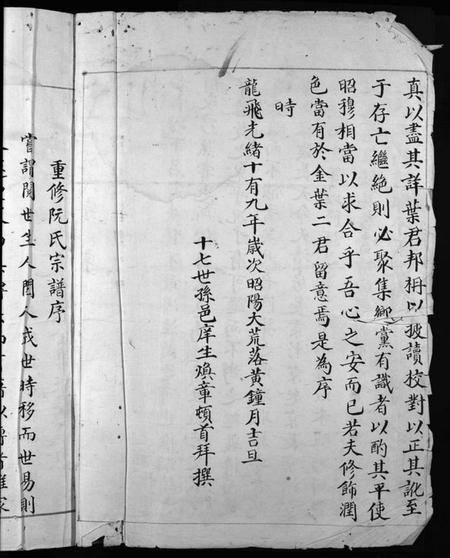 真以盡其詳葉君邦枏以披讀校對以正其訛至
于存亡繼絕則必聚集鄉黨有識者以酌其平使
昭穆相當以求合乎吾心之安而已若夫修飾潤
色當有於金葉二君留意焉是為序
時
龍飛光緒十有九年歲次昭陽大荒落黃鐘月吉旦
十七世孫邑庠生煥章頓首拜撰
重修阮氏宗譜序
嘗謂閱世生人閱人成世時移而世易則